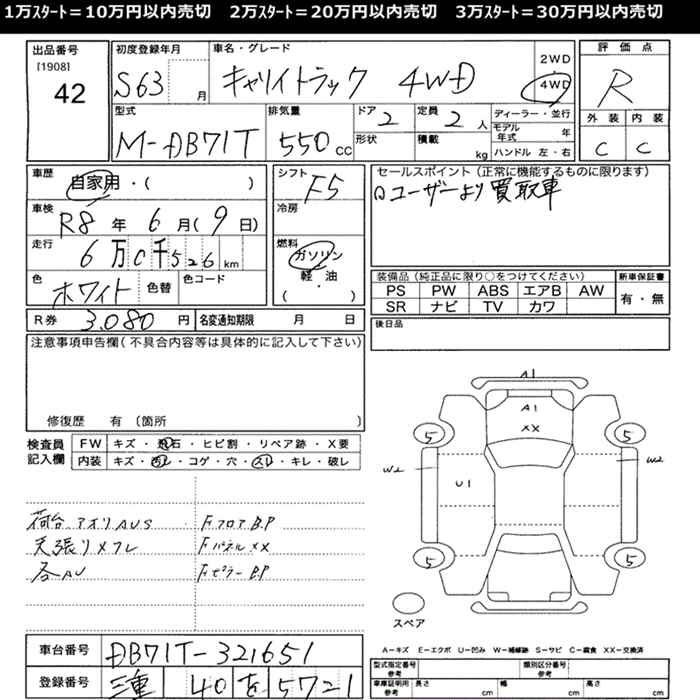 1万スタート=10万円以内売切　2万スタート=20万円以内売切　3万スタート=30万円以内売切
出品番号 [1908] 42
初度登録年月 S63 月
車名・グレード キャリイトラック 4WD
2WD
4WD
評価点 R
外装 内装
C C
型式 M-DB71T
排気量 550 cc
ドア 2
形状
定員 2 人
積載 kg
ディーラー・並行
モデル年式 年
ハンドル 左・右
車歴 自家用・( )
車検 R8 年 6 月( 9 日)
走行 6 万 0 千 5 2 6 km
色 ホワイト 色替 色コード
シフト F5
冷房
燃料 ガソリン
軽・油
( )
セールスポイント (正常に機能するものに限ります)
ロユーザーより買取車
装備品 (純正品に限り○をつけてください)
PS PW ABS エアB AW
SR ナビ TV カワ
新車保証書
有・無
R券 3,080 円 名変通知期限 月 日
後日品
注意事項申告欄(不具合内容等は具体的に記入して下さい)
修復歴 有 (箇所 )
検査員記入欄
FW キズ・飛石・ヒビ割・リペア跡・X要
内装 キズ・汚レ・コゲ・穴・スレ・キレ・破レ
荷台アオリAUS Fフロア B.P
天張リメクレ Fパネル XX
各AU Fピラー B.P
A1
A1
XX
5 5
W2 W2
U1
5 5
スペア
A-キズ E-エクボ U-凹み W-補修跡 S-サビ C-腐食 XX-交換済
車台番号 DB71T-321651
登録番号 三重 40 を 5721
型式指定番号 参考 類別区分番号 参考
車庫証明用 参考 長さ cm 幅 cm 高さ cm